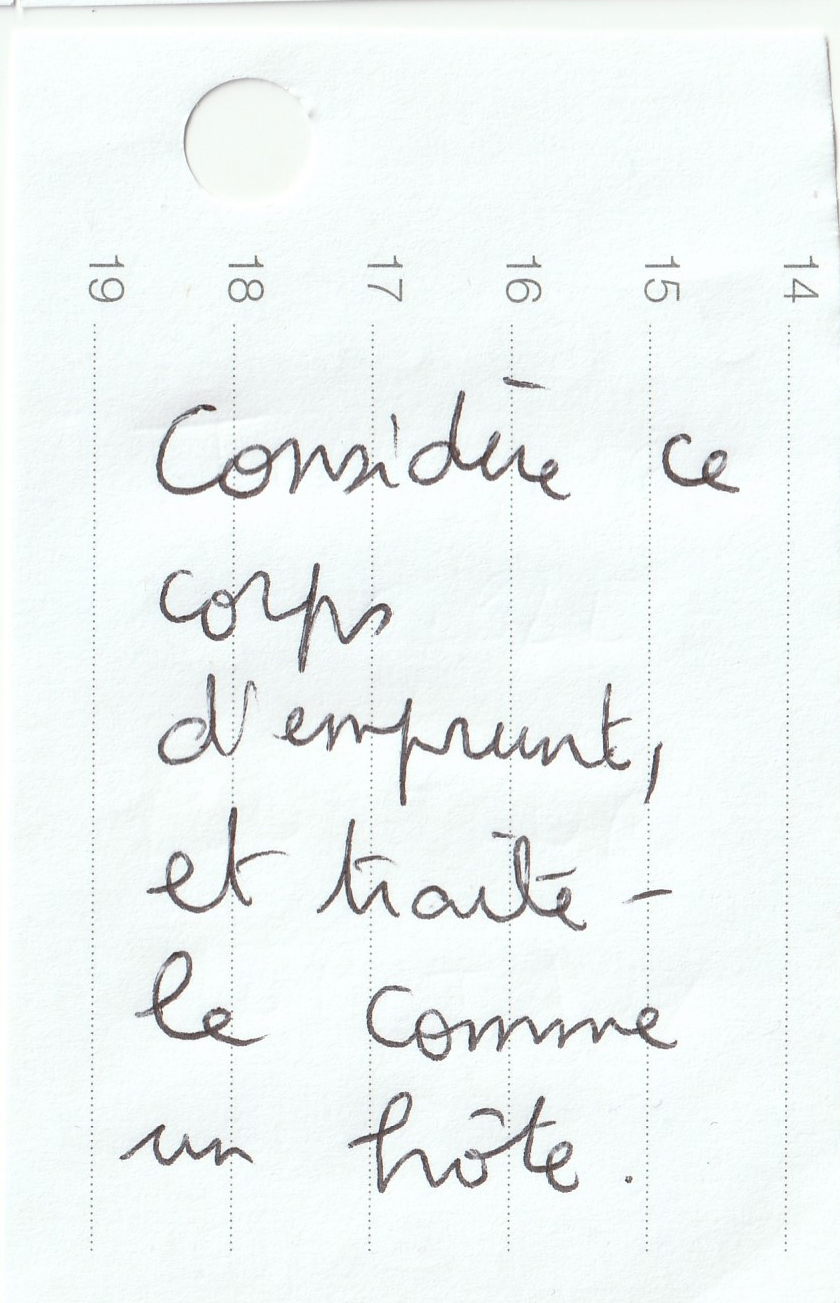 19 18 17 16 15 14
Considère ce
corps
d'emprunt,
et traite-
le comme
un hôte.